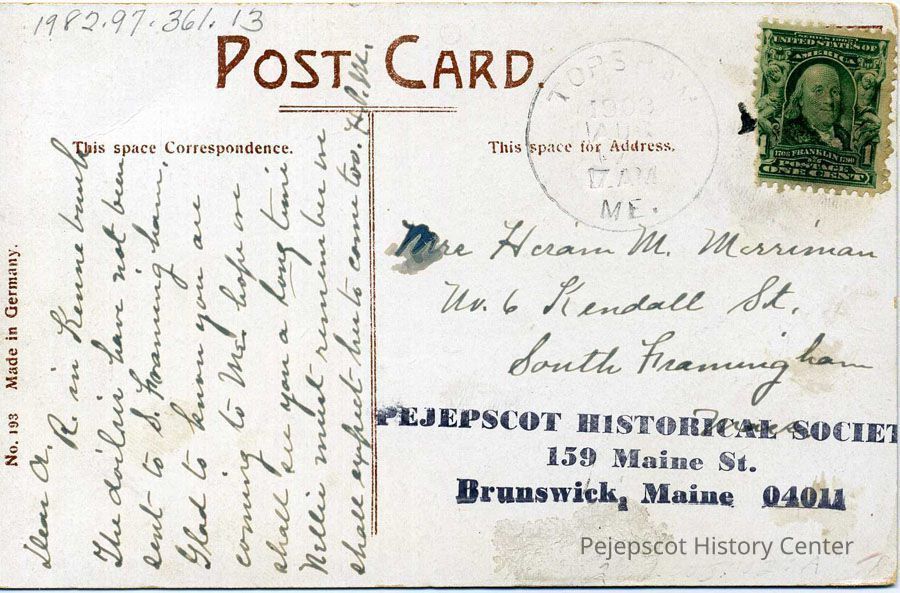 1982.97.361.13
POST CARD.
This space Correspondence.
This space for Address.
TOPSHAM
7 AM
ME.
SERIES 1902
UNITED STATES OF
AMERICA
1706 FRANKLIN 1790
1 POSTAGE 1
ONE CENT
No. 193 Made in Germany.
Dear A.
R. in Kennebunk
The doilies have not been
sent to S. Framingham.
Glad to know you are
coming to Me. hope we
shall see you a long time
Nellie must remember we
shall expect her to come too. H.P.M.
Mrs Hiram M. Merriman
No. 6 Kendall St.
South Framingham
Mass
PEJEPSCOT HISTORICAL SOCIET
159 Maine St.
Brunswick, Maine 04011
Pejepscot History Center